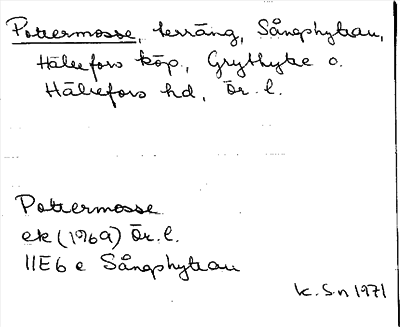 Pottermosse, terräng, Sångshyttan,
Hällefors köp., Grythytte o.
Hällefors hd, Ör. l.
Pottermosse
ek (1969) Ör. l.
11E6e Sångshyttan
K. S-n 1971